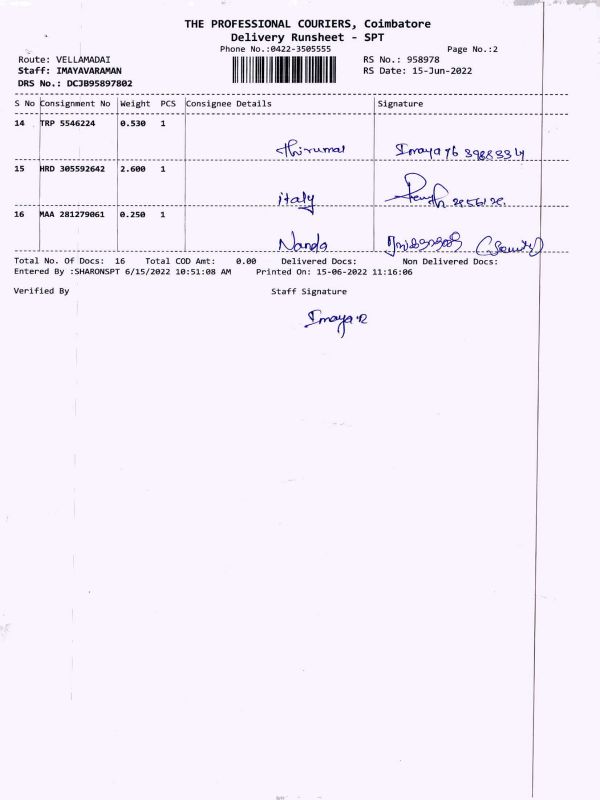 THE PROFESSIONAL COURIERS, Coimbatore
Delivery Runsheet - SPT
Phone No.:0422-3505555 Page No.:2
Route: VELLAMADAI RS No.: 958978
Staff: IMAYAVARAMAN RS Date: 15-Jun-2022
DRS No.: DCJB95897802
S No Consignment No Weight PCS Consignee Details Signature
14 TRP 5546224 0.530 1
thirumal Imaya 76
15 HRD 305592642 2.600 1
italy
16 MAA 281279061 0.250 1
Nanda
Total No. Of Docs: 16 Total COD Amt: 0.00 Delivered Docs: Non Delivered Docs:
Entered By :SHARONSPT 6/15/2022 10:51:08 AM Printed On: 15-06-2022 11:16:06
Verified By Staff Signature